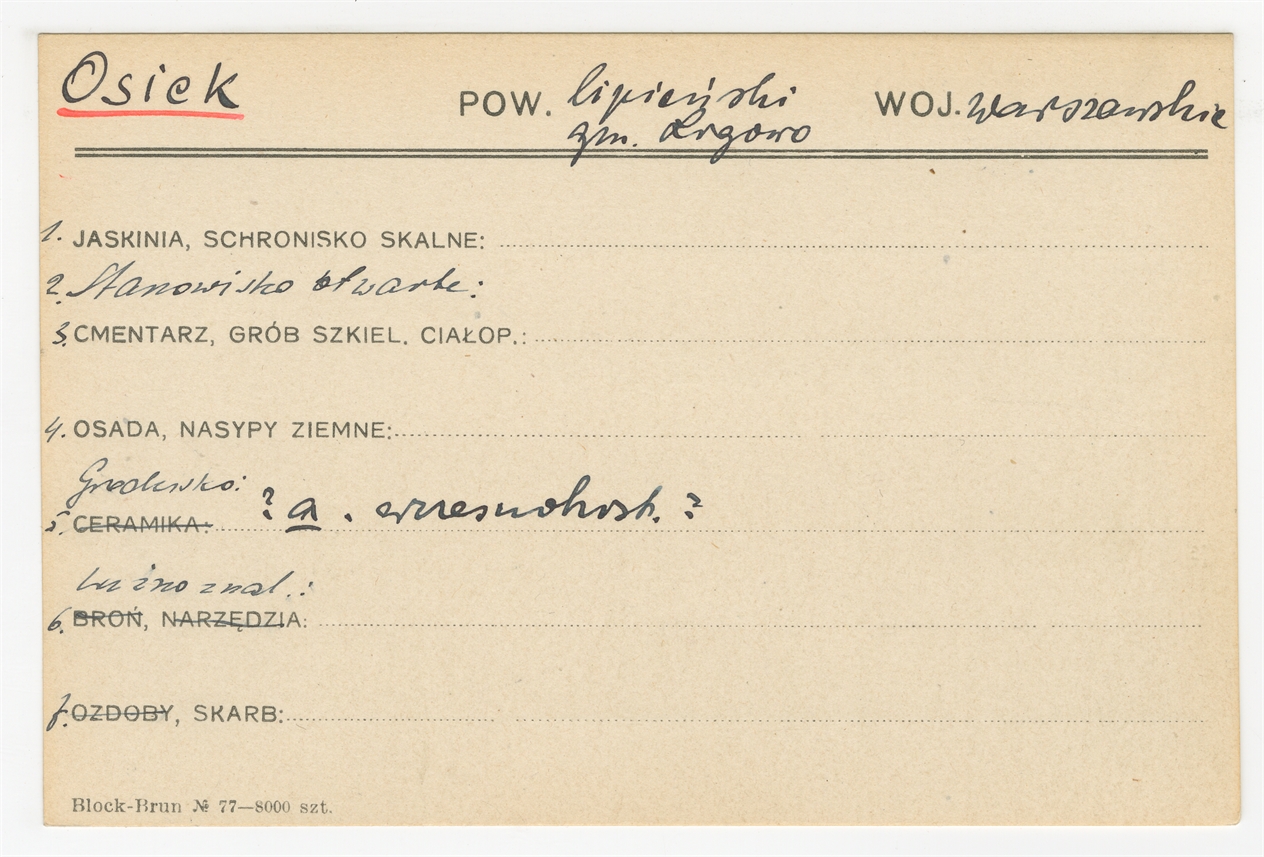 Osiek POW. lipieński WOJ. warszawskie
gm. Ligowo
1. JASKINIA, SCHRONISKO SKALNE:
2. Stanowisko otwarte:
3. CMENTARZ, GRÓB SZKIEL. CIAŁOP.:
4. OSADA, NASYPY ZIEMNE:
Grodzisko: ? a. wczesnohist. ?
5. CERAMIKA:
Luźno znal.:
6. BROŃ, NARZĘDZIA:
7. OZDOBY, SKARB:
Block-Brun № 77—8000 szt.